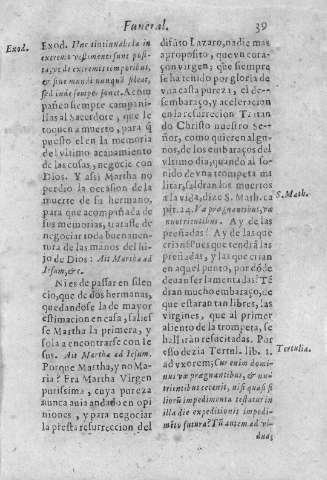 Funeral. 39
Exod.
Exod. Hæc tintinnabula in
extrema vestimenti sunt posi-
ta, vt de extremis temporibus,
& fine mundi nunquã sileat,
sed inde semper sonet. Acom
pañen siempre campani-
llas al Sacerdote, que le
toquen a muerto, para q̃
puesto el en la memoria
del vltimo acauamiento
de las cosas, negocie con
Dios. Y assi Martha no
perdio la occasion de la
muerte de su hermano,
para que acompañada de
sus memorias, tratasse de
negociar toda buenauen-
tura de las manos del hi-
jo de Dios: Ait Martha ad
Iesum, &c.
Ni es de passar en silen
cio, que de dos hermanas,
quedandose la de mayor
estimacion en casa, salies-
se Martha la primera, y
sola a encontrarse con Ie-
sus. Ait Martha ad Iesum.
Porque Martha, y no Ma-
ria? Era Martha Virgen
purissima, cuya pureza
nunca auia andado en opi
niones, y para negociar
la presta resurreccion del
difũto Lazaro, nadie mas
aproposito, que vn cora-
çon virgen; que siempre
le ha tenido por gloria de
vna casta pureza, el de-
sembaraço, y aceleracion
en la resurreccion. Tratan
do Christo nuestro Se-
ñor, como quieren algu-
nos, de los embaraços del
vltimo dia, quando al so-
nido de vna trompeta mi
litar, saldran los muertos
a la vida, dize S. Math. ca
pit. 24. Væ prægnantibus, væ
nutrientibus. Ay de las
preñadas! Ay de las que
crian! pues que tendrã las
preñadas, y las que crian
en aquel punto, por dõde
deuan ser lamentadas? Tẽ
dran mucho embaraço, de
que estaran tan libres, las
virgines, que al primer
aliento de la trompeta, se
hallarãn resucitadas. Por
esso dezia Tertul. lib. 1.
ad vxorem; Cur enim domi-
nus væ prægnantibus, & nu-
trientibus cecenit, nisi quasi fi
liorũ impedimenta testatur in
illa die expeditionis impedi-
mẽto futura? Tũ autem ad vi-
duas
S. Math.
Tertulia.